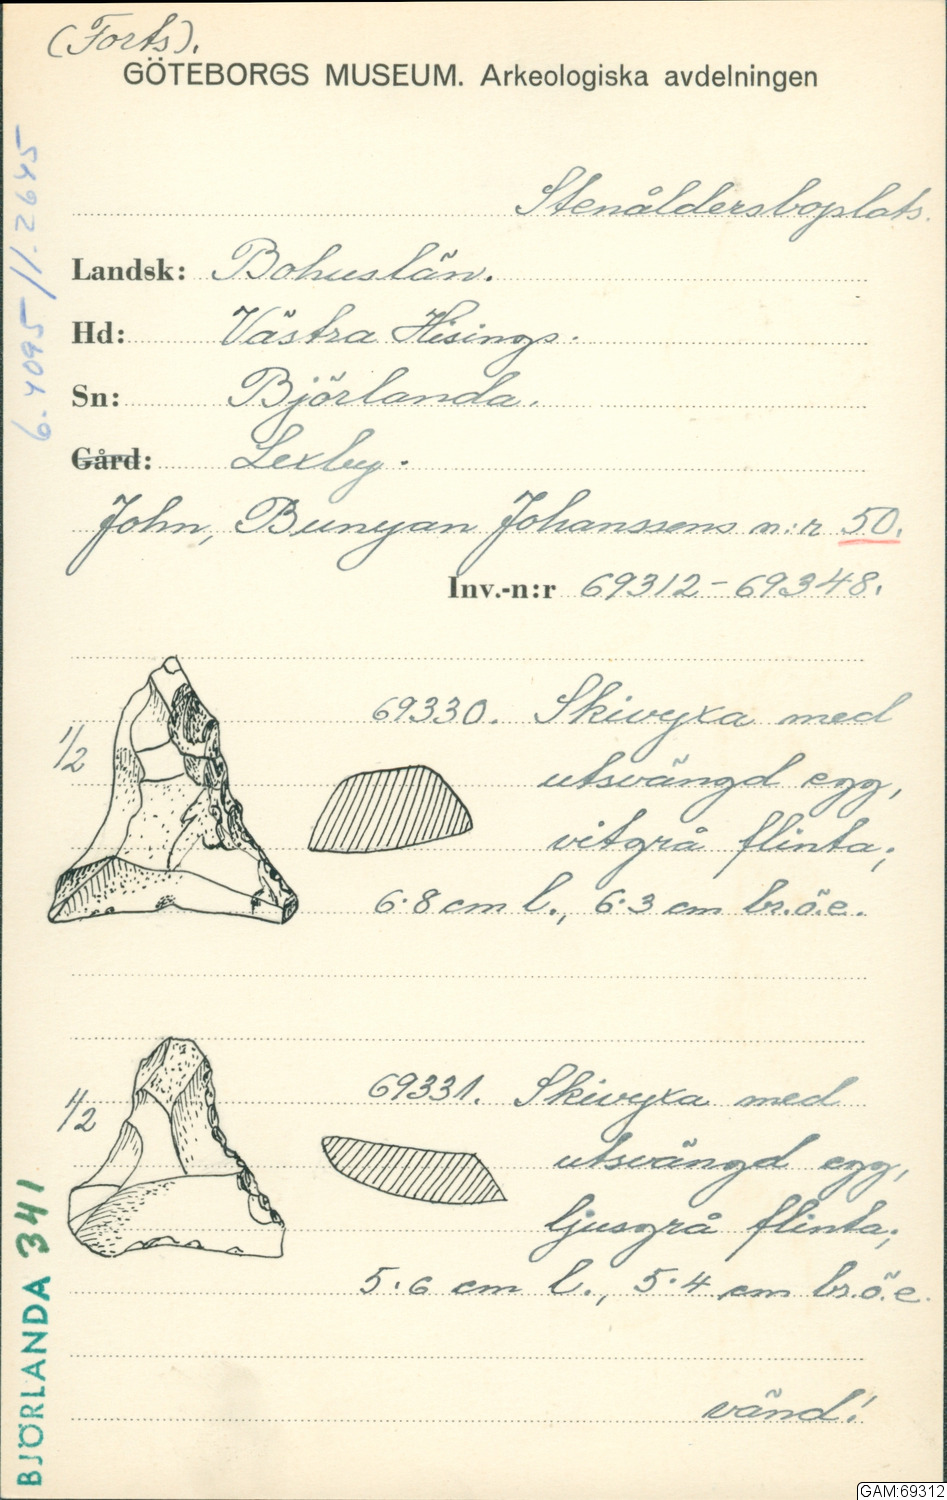 (Forts).
GÖTEBORGS MUSEUM. Arkeologiska avdelningen
6.4095/1.2645
Stenåldersboplats.
Landsk: Bohuslän.
Hd: Västra Hisings.
Sn: Björlanda.
Gård: Lexby.
John, Bunyan Johanssons n:r 50.
Inv.-n:r 69312-69348.
1/2
69330. Skivyxa med
utsvängd egg,
vitgrå flinta;
6.8 cm l., 6.3 cm br.ö.e.
1/2
69331. Skivyxa med
utsvängd egg,
ljusgrå flinta;
5.6 cm l., 5.4 cm br.ö.e.
vänd!
BJÖRLANDA 341
GAM:69312